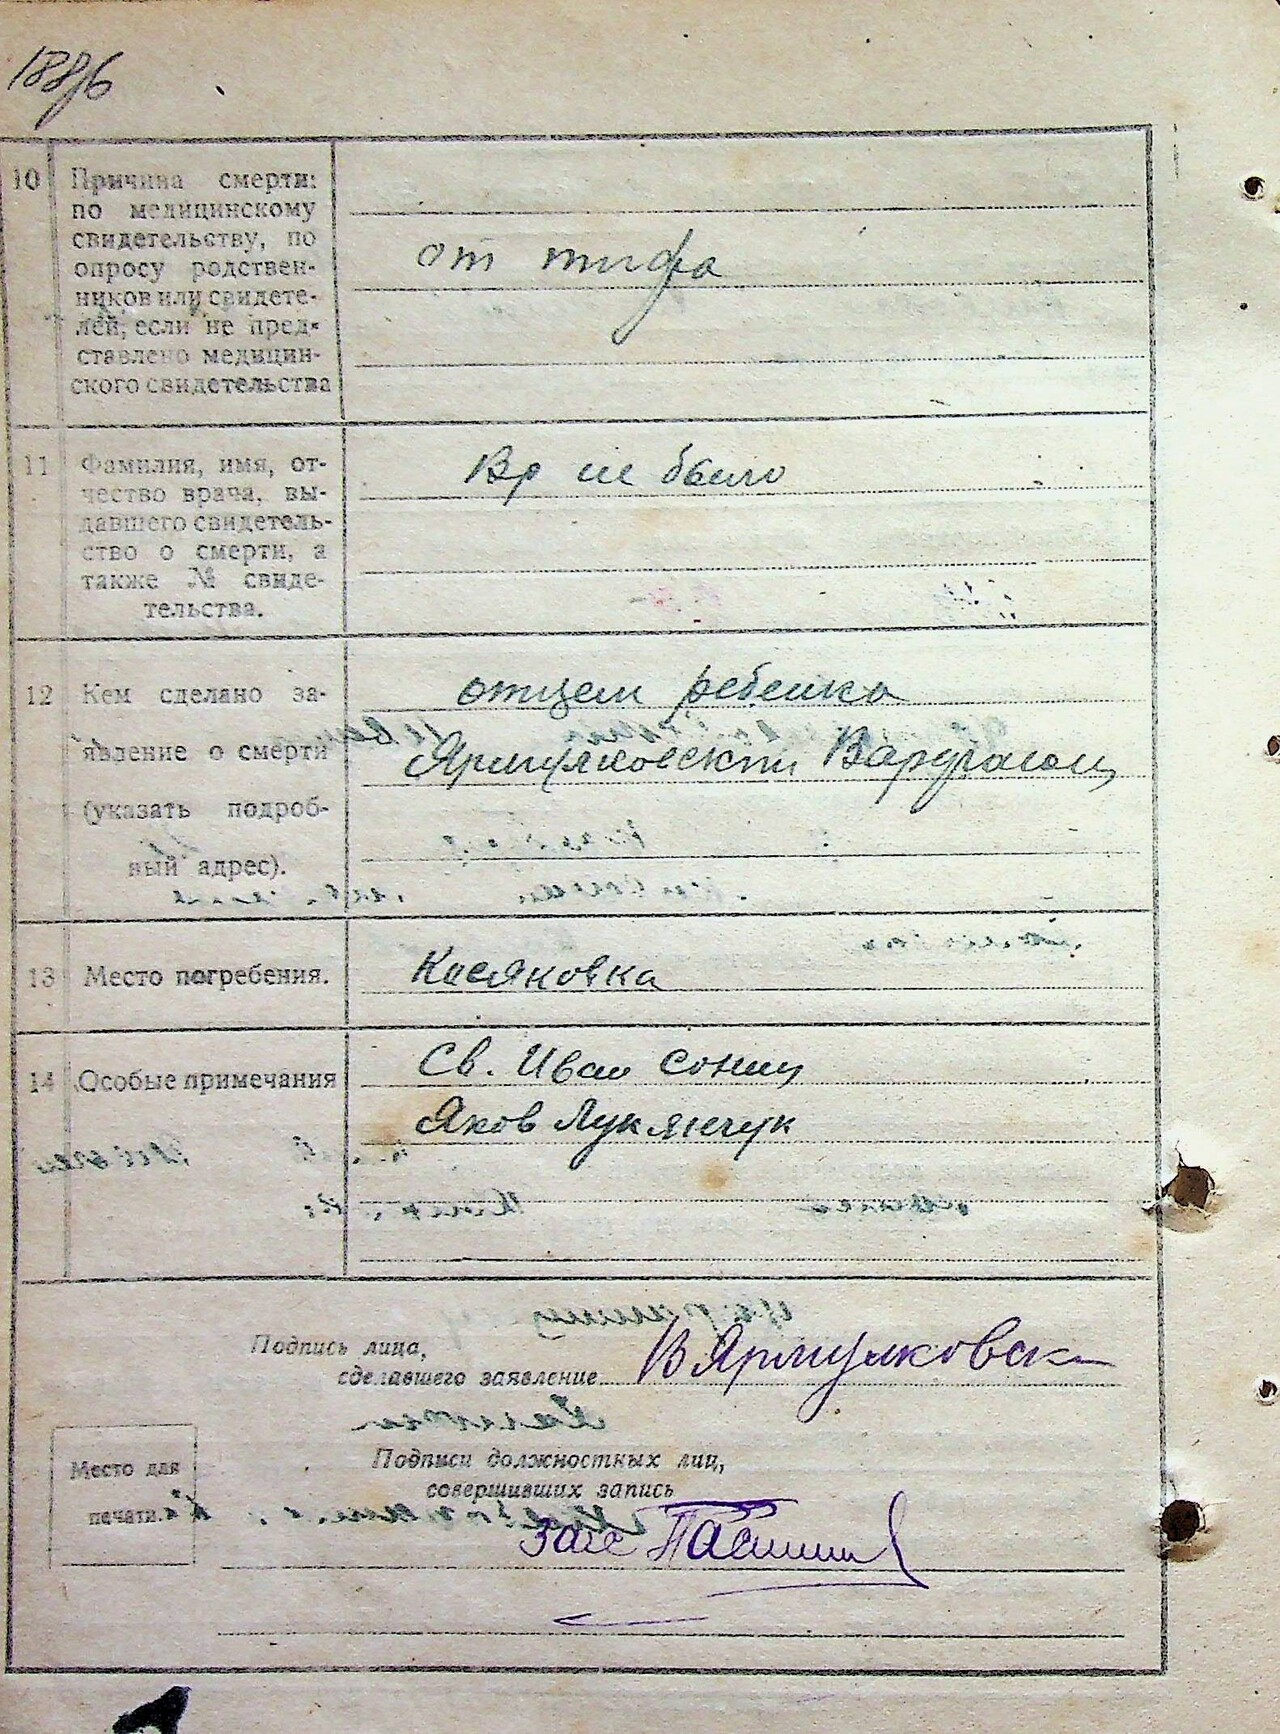 188/6
10 Причина смерти:
по медицинскому
свидетельству, по
опросу родствен-
ников или свидете-
лей, если не пред-
ставлено медицин-
ского свидетельства
от тифа
11 Фамилия, имя, от-
чество врача, вы-
давшего свидетель-
ство о смерти, а
также № свиде-
тельства.
Вр не было
12 Кем сделано за-
явление о смерти
(указать подроб-
ный адрес).
отцем ребенка
Ярмулковский
13 Место погребения.
Касяновка
14 Особые примечания
Св. Иван
Яков Лукянчук
Подпись лица,
сделавшего заявление
В Ярмулковск
Место для
печати.
Подписи должностных лиц,
совершивших запись
загс